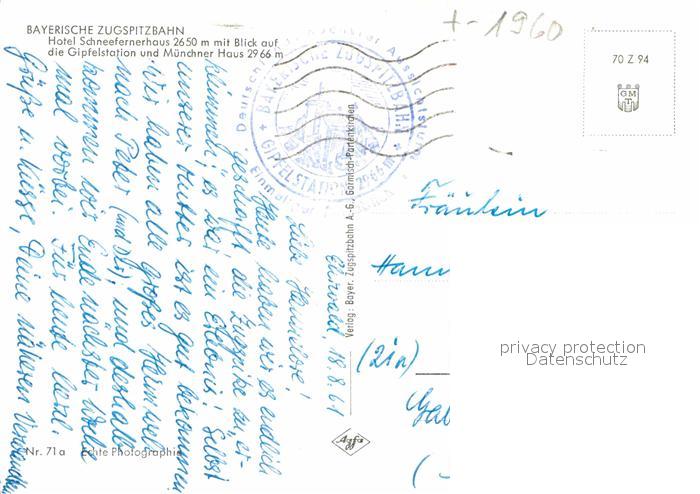 BAYERISCHE ZUGSPITZBAHN
Hotel Schneefernerhaus 2650 m mit Blick auf
die Gipfelstation und Münchner Haus 2966 m
+ - 1960
70 Z 94
GM
BAYERISCHE ZUGSPITZBAHN
GIPFELSTATION 2966m
Ehrwald, 18.8.61
Liebe Hannelore!
Heute haben wir es endlich
geschafft, die Zugspitze zu er-
klimmen, es war ein Erlebnis! Selbst
unserer Mutter ist es gut bekommen
Wir haben alle großes Heimweh
nach Peter (und Dir) und deshalb
kommen wir Ende nächster Woche
mal vorbei. Für heute herzl.
Grüße u. Küsse, Deine näheren Verwandten
Verlag: Bayer. Zugspitzbahn A.-G., Garmisch-Partenkirchen
Fräulein
Hann
(21a)
Agfa
Nr. 71a Echte Photographie
privacy protection
Datenschutz